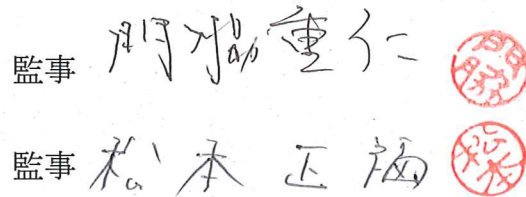 監事 門脇重仁 門脇
監事 松本正福 松本